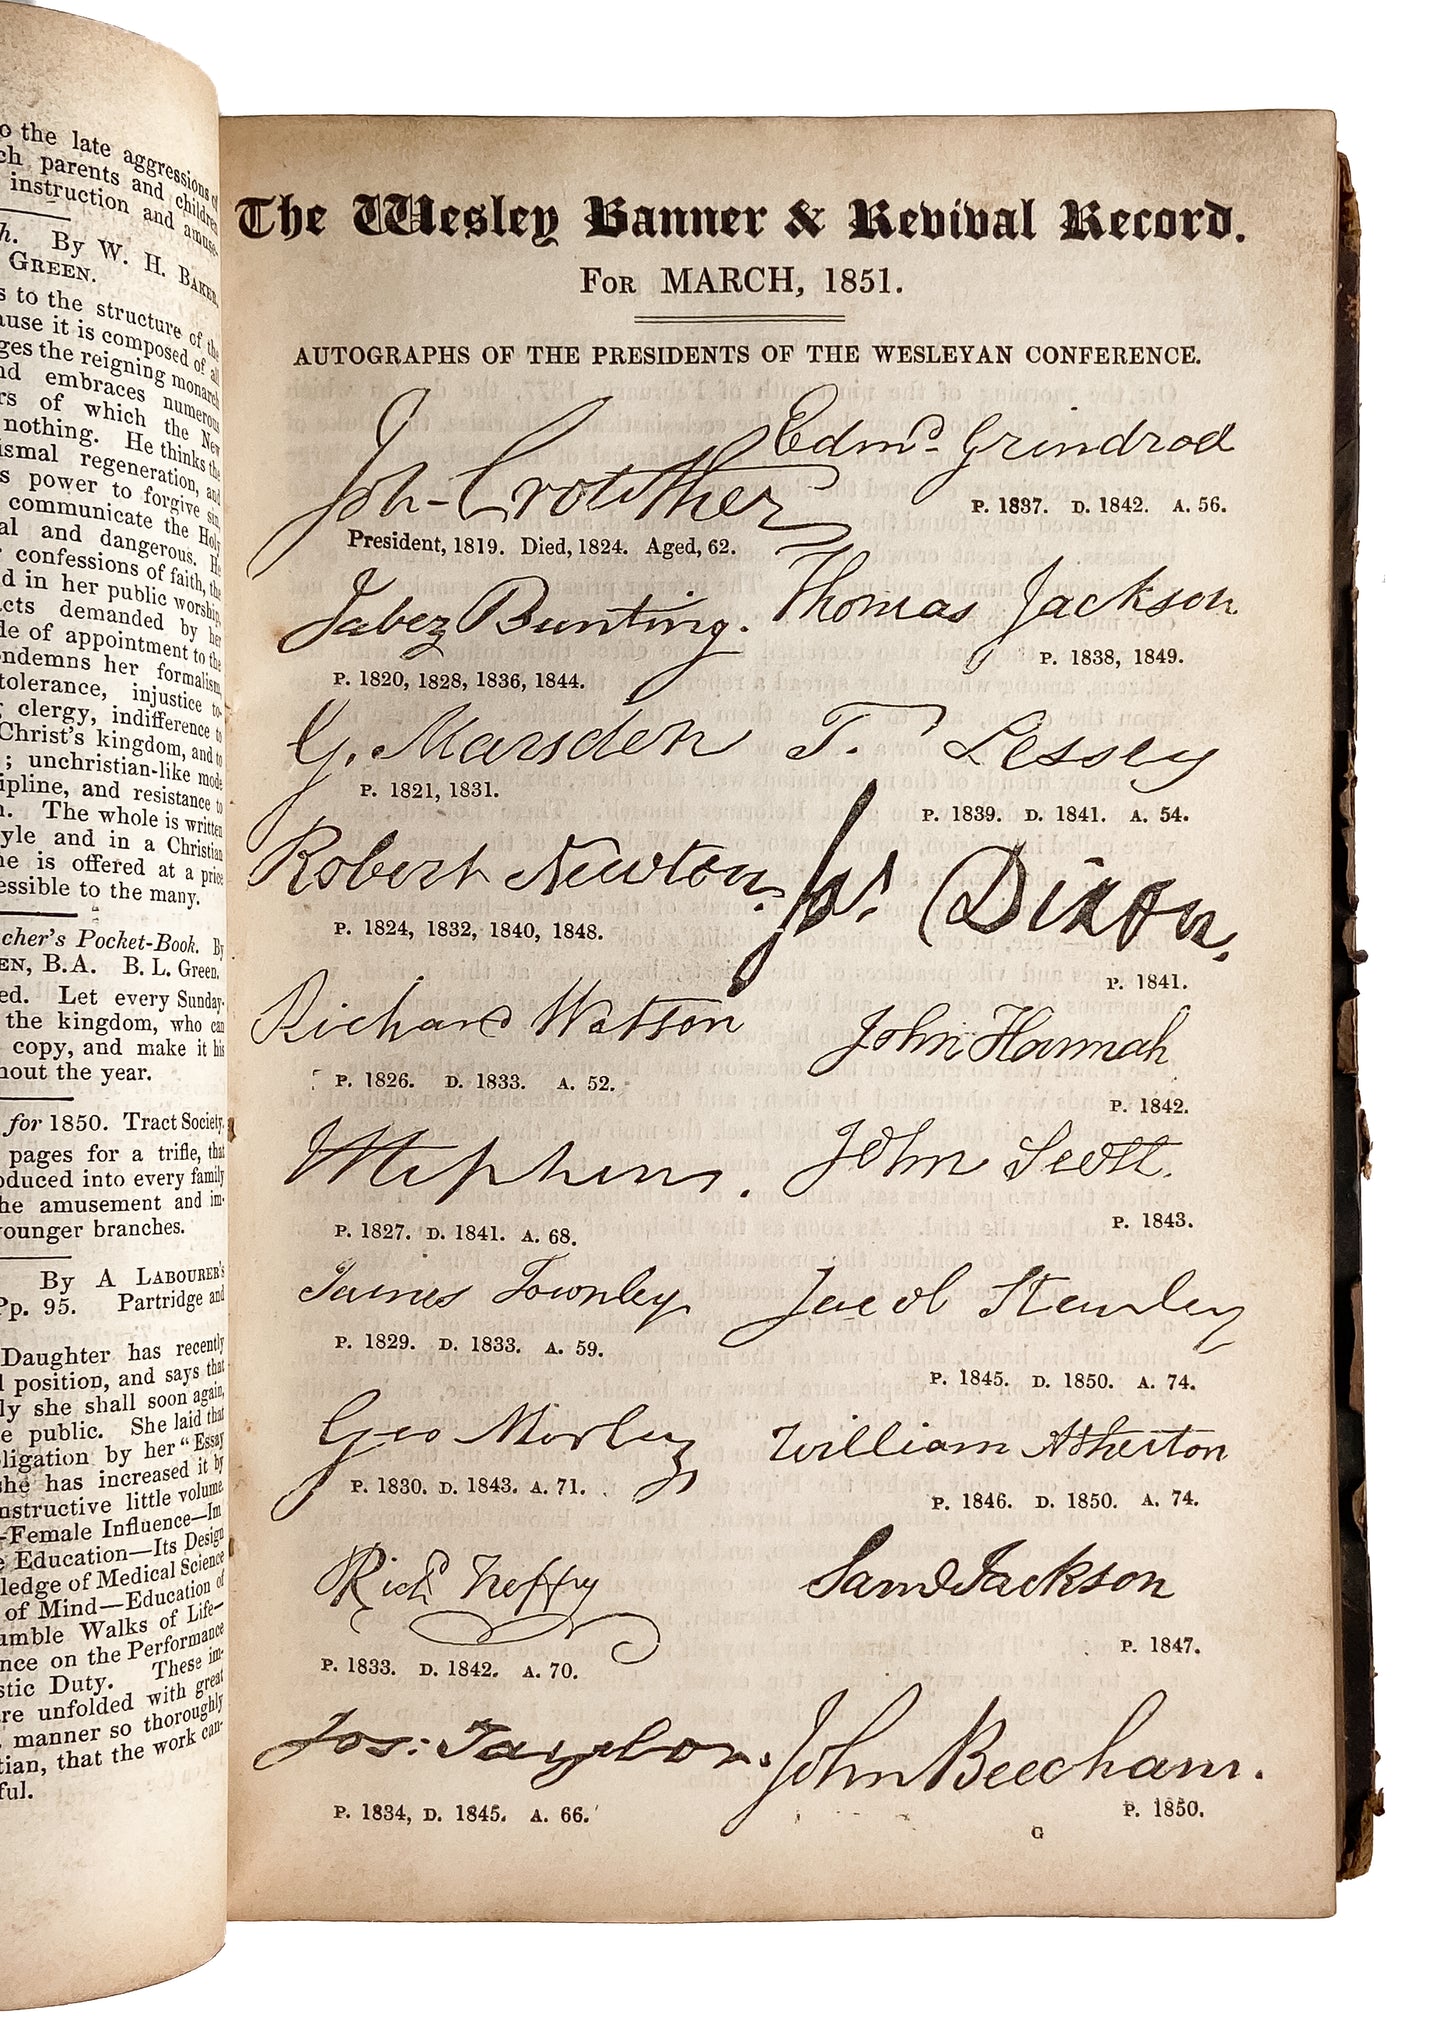 o the late aggressions of
ch parents and children
instruction and amuse-
h. By W. H. BAKER,
GREEN.
s to the structure of the
ause it is composed of all
ges the reigning monarch
nd embraces numerous
rs of which the New
nothing. He thinks the
ismal regeneration, and
s power to forgive sin,
communicate the Holy
al and dangerous. He
confessions of faith, the
d in her public worship,
cts demanded by her
de of appointment to the
ondemns her formalism,
tolerance, injustice to-
clergy, indifference to
Christ's kingdom, and to
; unchristian-like mode
ipline, and resistance to
n. The whole is written
yle and in a Christian
ne is offered at a price
essible to the many.
cher's Pocket-Book. By
EN, B.A. B. L. Green.
ed. Let every Sunday-
the kingdom, who can
copy, and make it his
hout the year.
for 1850. Tract Society.
pages for a trifle, that
oduced into every family
he amusement and im-
younger branches.
By A LABOURER'S
Pp. 95. Partridge and
Daughter has recently
l position, and says that
ly she shall soon again,
e public. She laid that
bligation by her "Essay
she has increased it by
nstructive little volume
—Female Influence—Im
e Education—Its Design
ledge of Medical Science
of Mind—Education of
umble Walks of Life—
nce on the Performance
stic Duty. These im-
re unfolded with great
manner so thoroughly
tian, that the work can-
ful.
The Wesley Banner & Revival Record.
FOR MARCH, 1851.
AUTOGRAPHS OF THE PRESIDENTS OF THE WESLEYAN CONFERENCE.
Jon- Crowther
President, 1819. Died, 1824. Aged, 62.
Jabez Bunting.
P. 1820, 1828, 1836, 1844.
G. Marsden
P. 1821, 1831.
Robert Newton.
P. 1824, 1832, 1840, 1848.
Richard Watson
P. 1826. D. 1833. A. 52.
J Stephens.
P. 1827. D. 1841. A. 68.
James Townley
P. 1829. D. 1833. A. 59.
Geo Morley
P. 1830. D. 1843. A. 71.
Richd Treffry
P. 1833. D. 1842. A. 70.
Jos: Taylor.
P. 1834, D. 1845. A. 66.
Edmd Grindrod
P. 1837. D. 1842. A. 56.
Thomas Jackson
P. 1838, 1849.
T. Lessey
P. 1839. D. 1841. A. 54.
Jas. Dixon.
P. 1841.
John Hannah
P. 1842.
John Scott.
P. 1843.
Jacob Stanley
P. 1845. D. 1850. A. 74.
William Atherton
P. 1846. D. 1850. A. 74.
Saml Jackson
P. 1847.
John Beecham.
P. 1850.
G